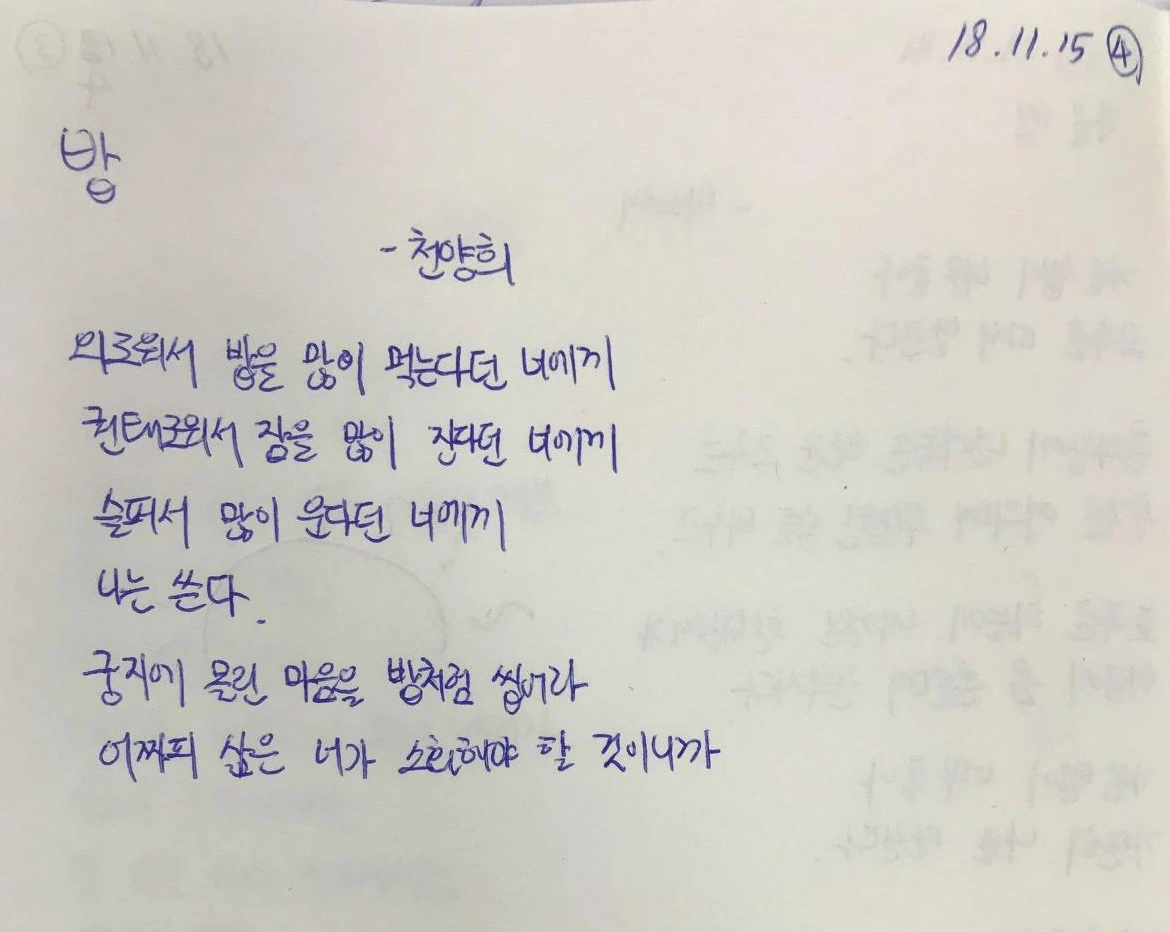 18.11.15 ④
밥
- 천양희
외로워서 밥을 많이 먹는다던 너에게
권태로워서 잠을 많이 잔다던 너에게
슬퍼서 많이 운다던 너에게
나는 쓴다.
궁지에 몰린 마음을 밥처럼 씹어라
어짜피 삶은 너가 소화해야 할 것이니까